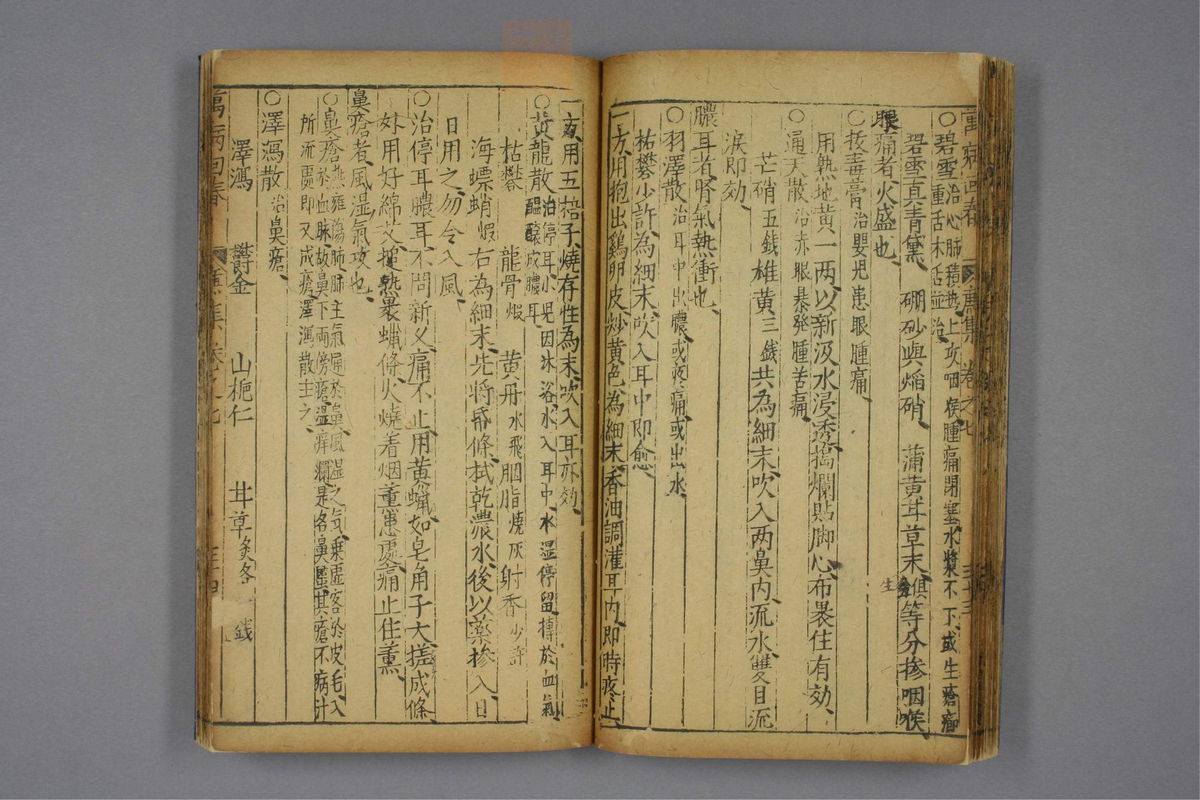 萬病回春 卷之七
○碧雪 治心肺積熱上攻咽喉腫痛閉塞水漿不下或生瘡癤
重舌木舌並治
碧雪真青黛 硼砂與焰硝 蒲黃甘草末 俱等分摻咽喉
眼痛者火盛也
○拔毒膏 治嬰兒患眼腫痛
用熟地黃一兩以新汲水浸透搗爛貼脚心布裹住有効
○通天散 治赤眼暴發腫苦痛
芒硝五錢雄黃三錢共為細末吹入兩鼻內流水雙目流
淚即効
膿耳者腎氣熱衝也
○羽澤散 治耳中出膿或疼痛或出水
枯礬少許為細末吹入耳中即愈
一方用抱出鷄卵皮炒黃色為細末香油調灌耳內即時疼止
一方用五棓子燒存性為末吹入耳亦効
○黃龍散 治停耳小兒因沐浴水入耳中水濕停留摶於血氣
醞釀成膿耳
枯礬 龍骨煅 黃丹水飛胭脂燒灰射香少許
海螵蛸煅 右為細末先將綿條拭乾濃水後以藥摻入日
日用之勿令入風
○治停耳膿耳不問新久痛不止用黃蠟如皂角子大搓成條
外用好綿艾搥熟裹蠟條火燒着烟薰患處痛止住薰
鼻瘡者風濕氣攻也
○鼻瘡 於血脉故鼻下兩傍瘡濕痒爛是名鼻䘌其瘡不痛汁
所流處即又成瘡澤瀉散主之
○澤瀉散 治鼻瘡
澤瀉 鬱金 山梔仁 甘草炙各 錢
萬病回春 卷之七